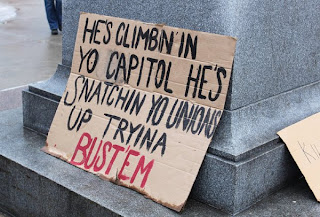 HE'S CLIMBIN' IN
YO CAPITOL HE'S
SNATCHIN YO UNIONS
UP TRYINA
BUST 'EM